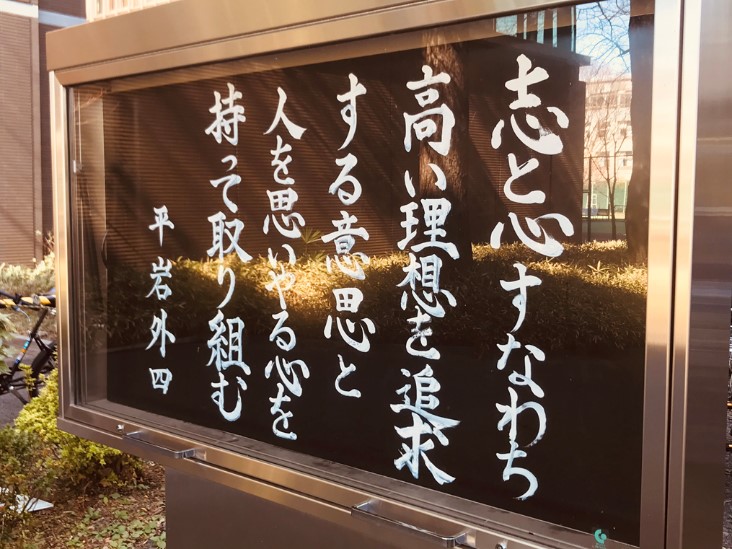 志と心すなわち
高い理想を追求
する意思と
人を思いやる心を
持って取り組む
平岩外四